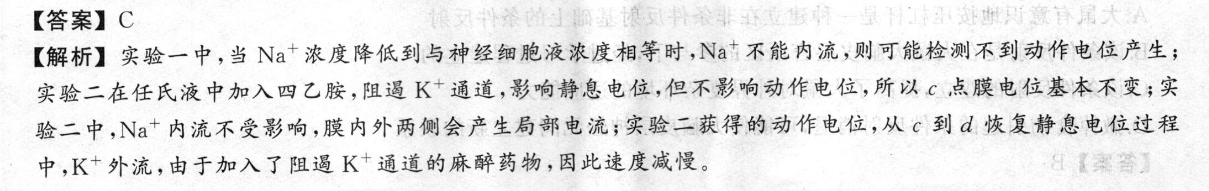 【答案】C
【解析】实验一中,当 Na⁺ 浓度降低到与神经细胞液浓度相等时,Na⁺ 不能内流,则可能检测不到动作电位产生;
实验二在任氏液中加入四乙胺,阻遏 K⁺ 通道,影响静息电位,但不影响动作电位,所以 c 点膜电位基本不变;实
验二中,Na⁺ 内流不受影响,膜内外两侧会产生局部电流;实验二获得的动作电位,从 c 到 d 恢复静息电位过程
中,K⁺ 外流,由于加入了阻遏 K⁺ 通道的麻醉药物,因此速度减慢。